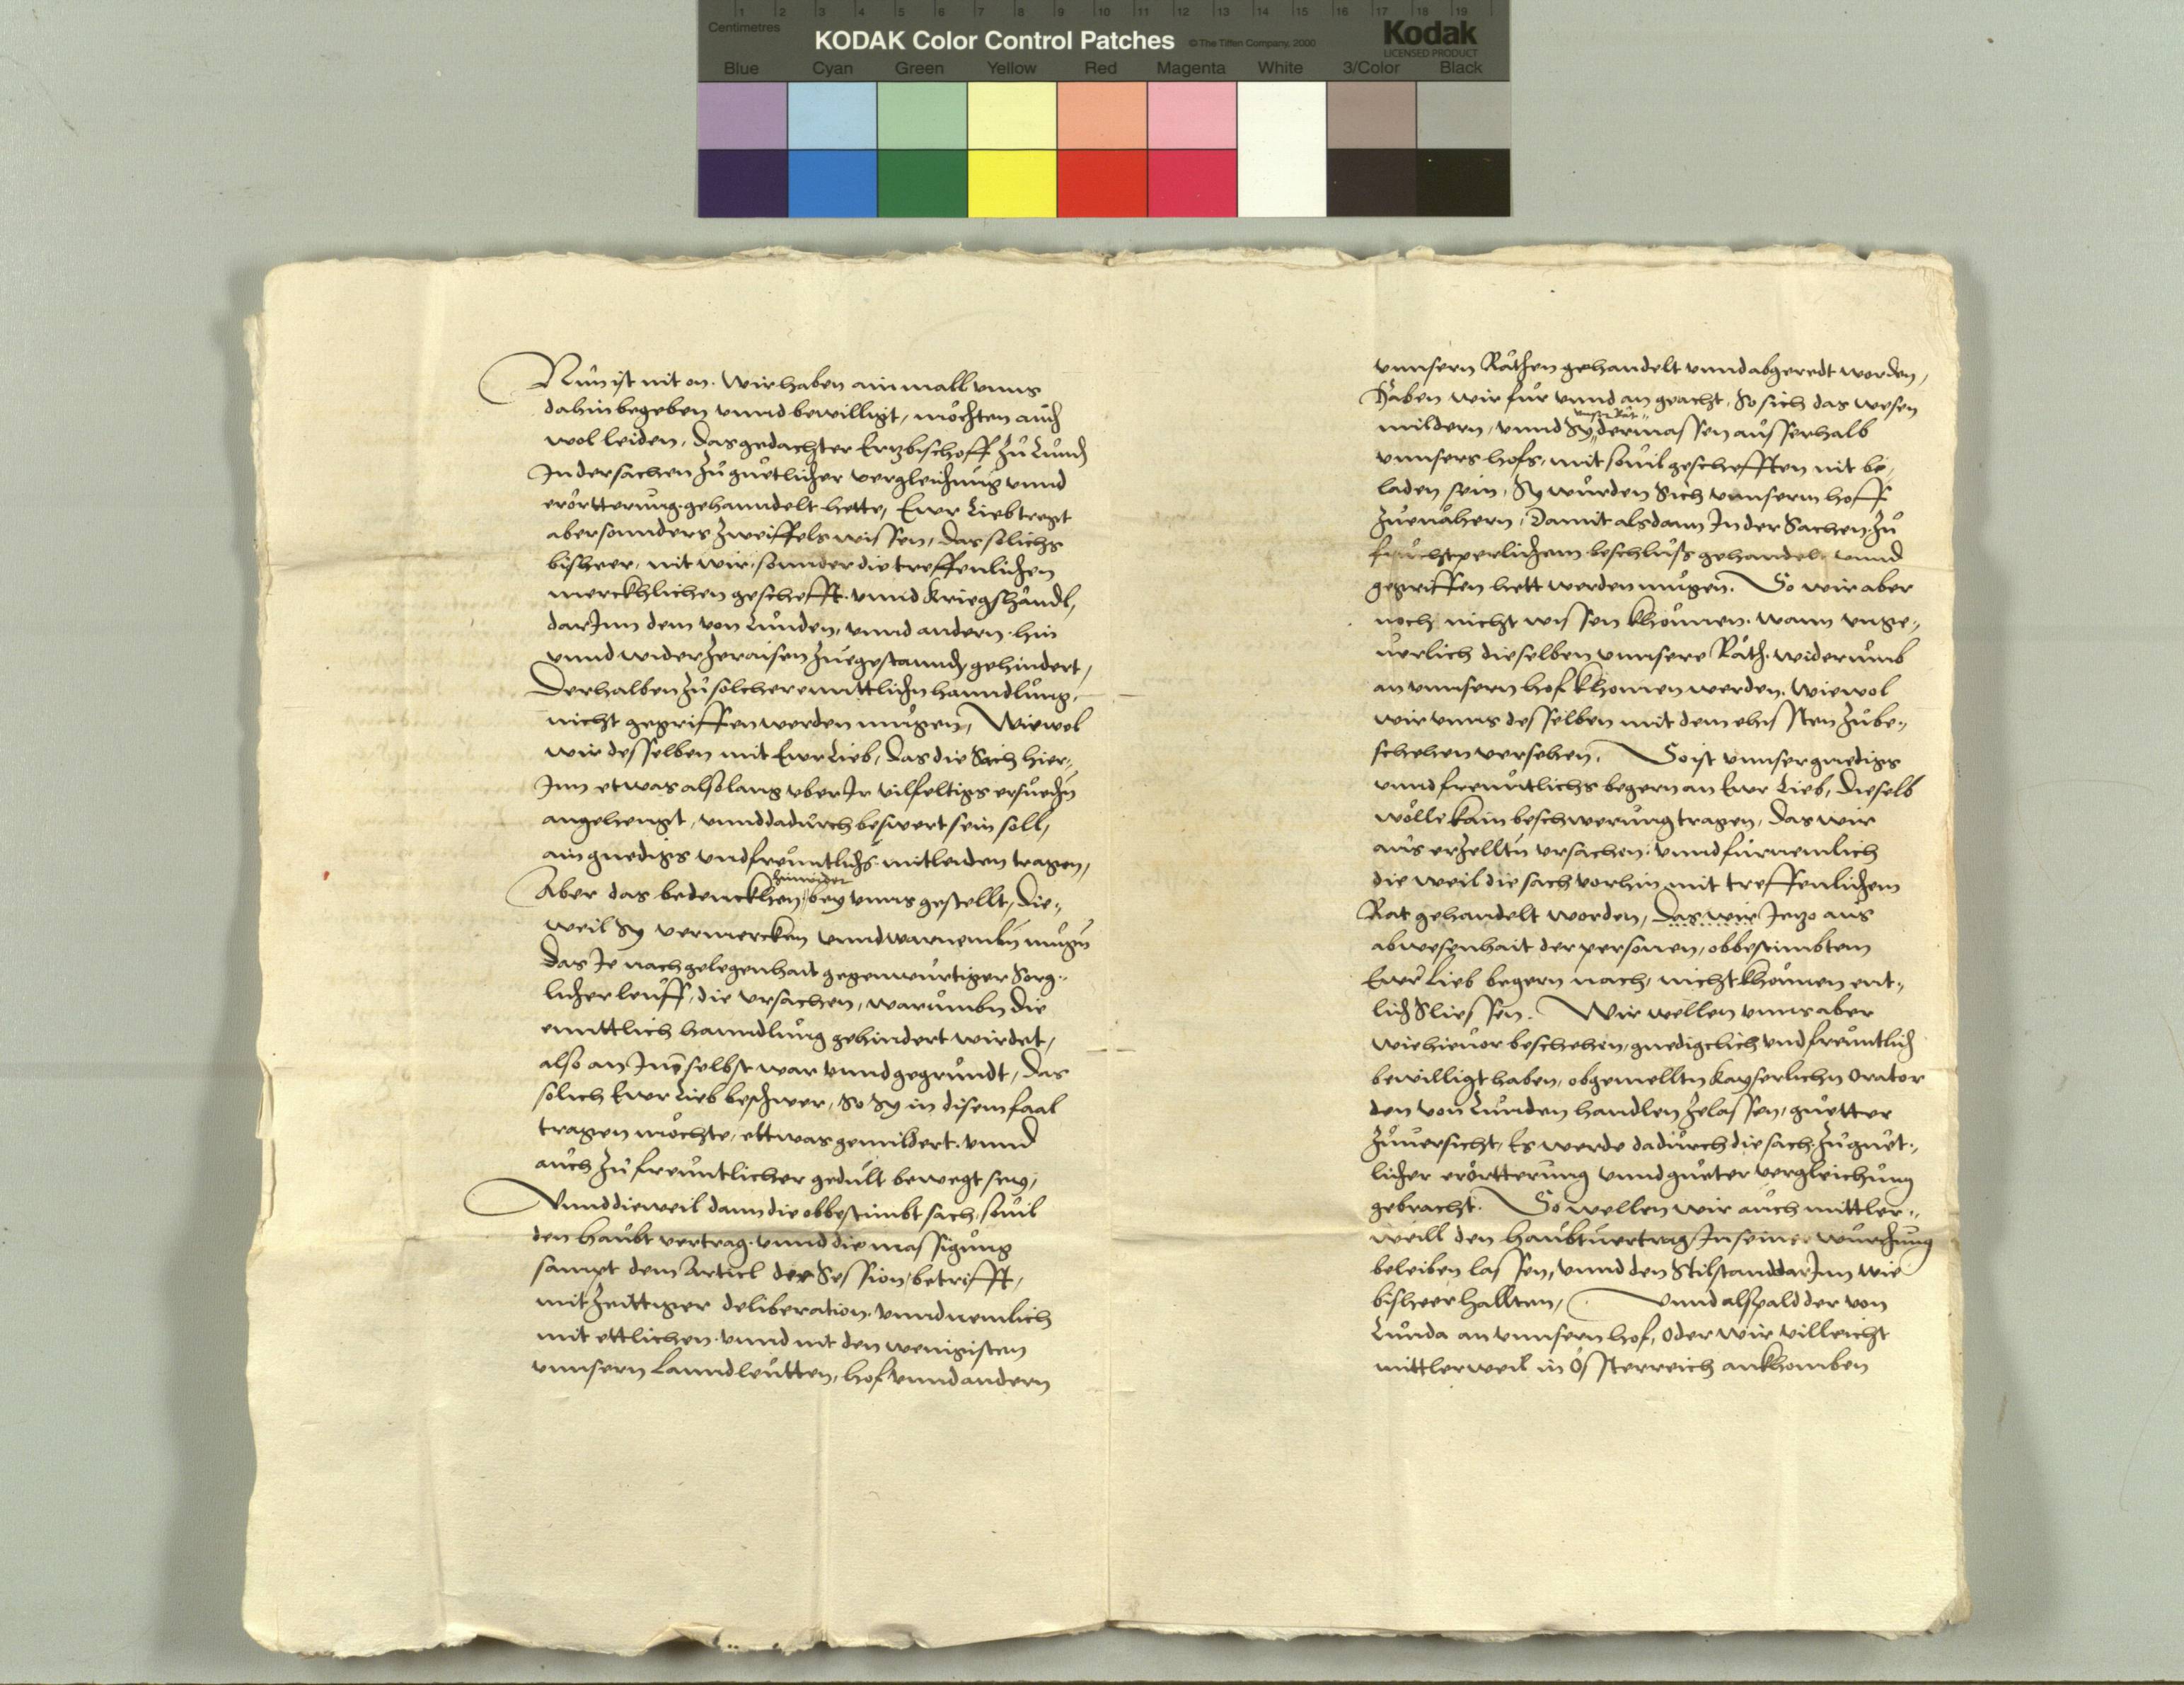 1 2 3 4 5 6 7 8 9 10 11 12 13 14 15 16 17 18 19
Centimetres
KODAK Color Control Patches © The Tiffen Company, 2000 Kodak
LICENSED PRODUCT
Blue Cyan Green Yellow Red Magenta White 3/Color Black
Nun ist nit on. Wir haben ainmall unns
dahin begeben unnd bewilligt, möchten auch
wol leiden, das gedachter Ertzbischoff zu Lund
In der sachen zu guetlicher vergleichung unnd
erörtterung gehanndelt hette, Ewr Lieb tregt
aber sonnders Zweiffels wissen, das solichs
bisheer, nit wir, sonnder die treffenlichen
merckhlichen gescheft unnd Kriegshändl,
dar Inn dem von Lunden, unnd andern hin
unnd wider Zeraisen Zuegestannden, gehindert,
Derhalben zu solcher enntlichn hanndlung,
nicht gegriffen werden mügen, Wiewol
wir desselben mit Ewr Lieb, das die Sach hier„
Inn etwas also lang uber Ir vilfeltigs ersuechn
angehengt, unnd dadurch beswert sein soll,
ain gnedigs und freuntlichs mitleiden tragen,
hinwider
Aber das bedenckhen, bey unns gestellt, Die„
weil Sy vermercken unnd warnemen mügn
Das Je nach gelegenhait gegenwurtiger Sorg„
licher leuff, die ursachen, warumbn die
enntlich hanndlung gehindert wirdet,
also an Inen selbst war unnd gegrundt, das
solich Ewr Lieb beschwer, so Sy in disem faal
tragen möchte, ettwas gemildert unnd
auch zu freuntlicher gedult bewegt sein,
Unnd dieweil dann die obbestimbt sach, souil
den haubt vertrag unnd die massigung
sampt dem Articl der Session, betrifft,
mit Zeittiger deliberation unnd nemlich
mit ettlichen unnd nit den wenigisten
unnsern Lanndleutten, hof unnd andern
unnsern Räthen gehandelt unnd abgeredt worden,
Haben wir für unnd an geacht, So sich das wesen
unser Rät
mildern, unnd Sy dermassen ausserhalb
unnsers hofs, mit souil gescheften nit be„
laden sein, Sy wurden Sich unnserm hoff
Zuenähern, damit alsdann In der Sachen zu
beschlus gehandelt unnd
gegriffen hett werden mügen. So wir aber
noch nicht wissen khönnen wann unge„
uerlich dieselben unnsere Räth widerumb
an unnsern hof khomen werden. Wiewol
wir unns desselben mit dem ehisten zube„
schehen versehen, So ist unnser gnedigs
unnd freuntlichs begern an Ewr Lieb, Dieselb
wölle kain beschwerung tragen, das wir
aus erzelltn ursachen unnd fürnemlich
die weil die sach vorhin mit treffenlichem
Rat gehandelt worden, Das wir Jetzo aus
abwesenhait der personen, obbestimbtem
Ewr Lieb begern nach, nicht khönnen ent„
lich Sliessen. Wir wellen unns aber
wie hieuor beschehen, gnedigclich und freuntlich
bewilligt haben, obgemelltn Kayserlichn Orator
den von Lunden handlen zelassen, guetter
Zuuersicht, Es werde dadurch die sach zu guet„
licher erörtterung unnd gueter vergleichung
gebracht. So wellen wir auch mittler„
weill den haubtuertrag In seiner würchung
beleiben lassen, unnd den Stilstand dar Inn wie
bisheer hallten, Unnd alspald der von
Lunda an unnsern hof, oder wir villeicht
mittlerweil in Össterreich ankhomben